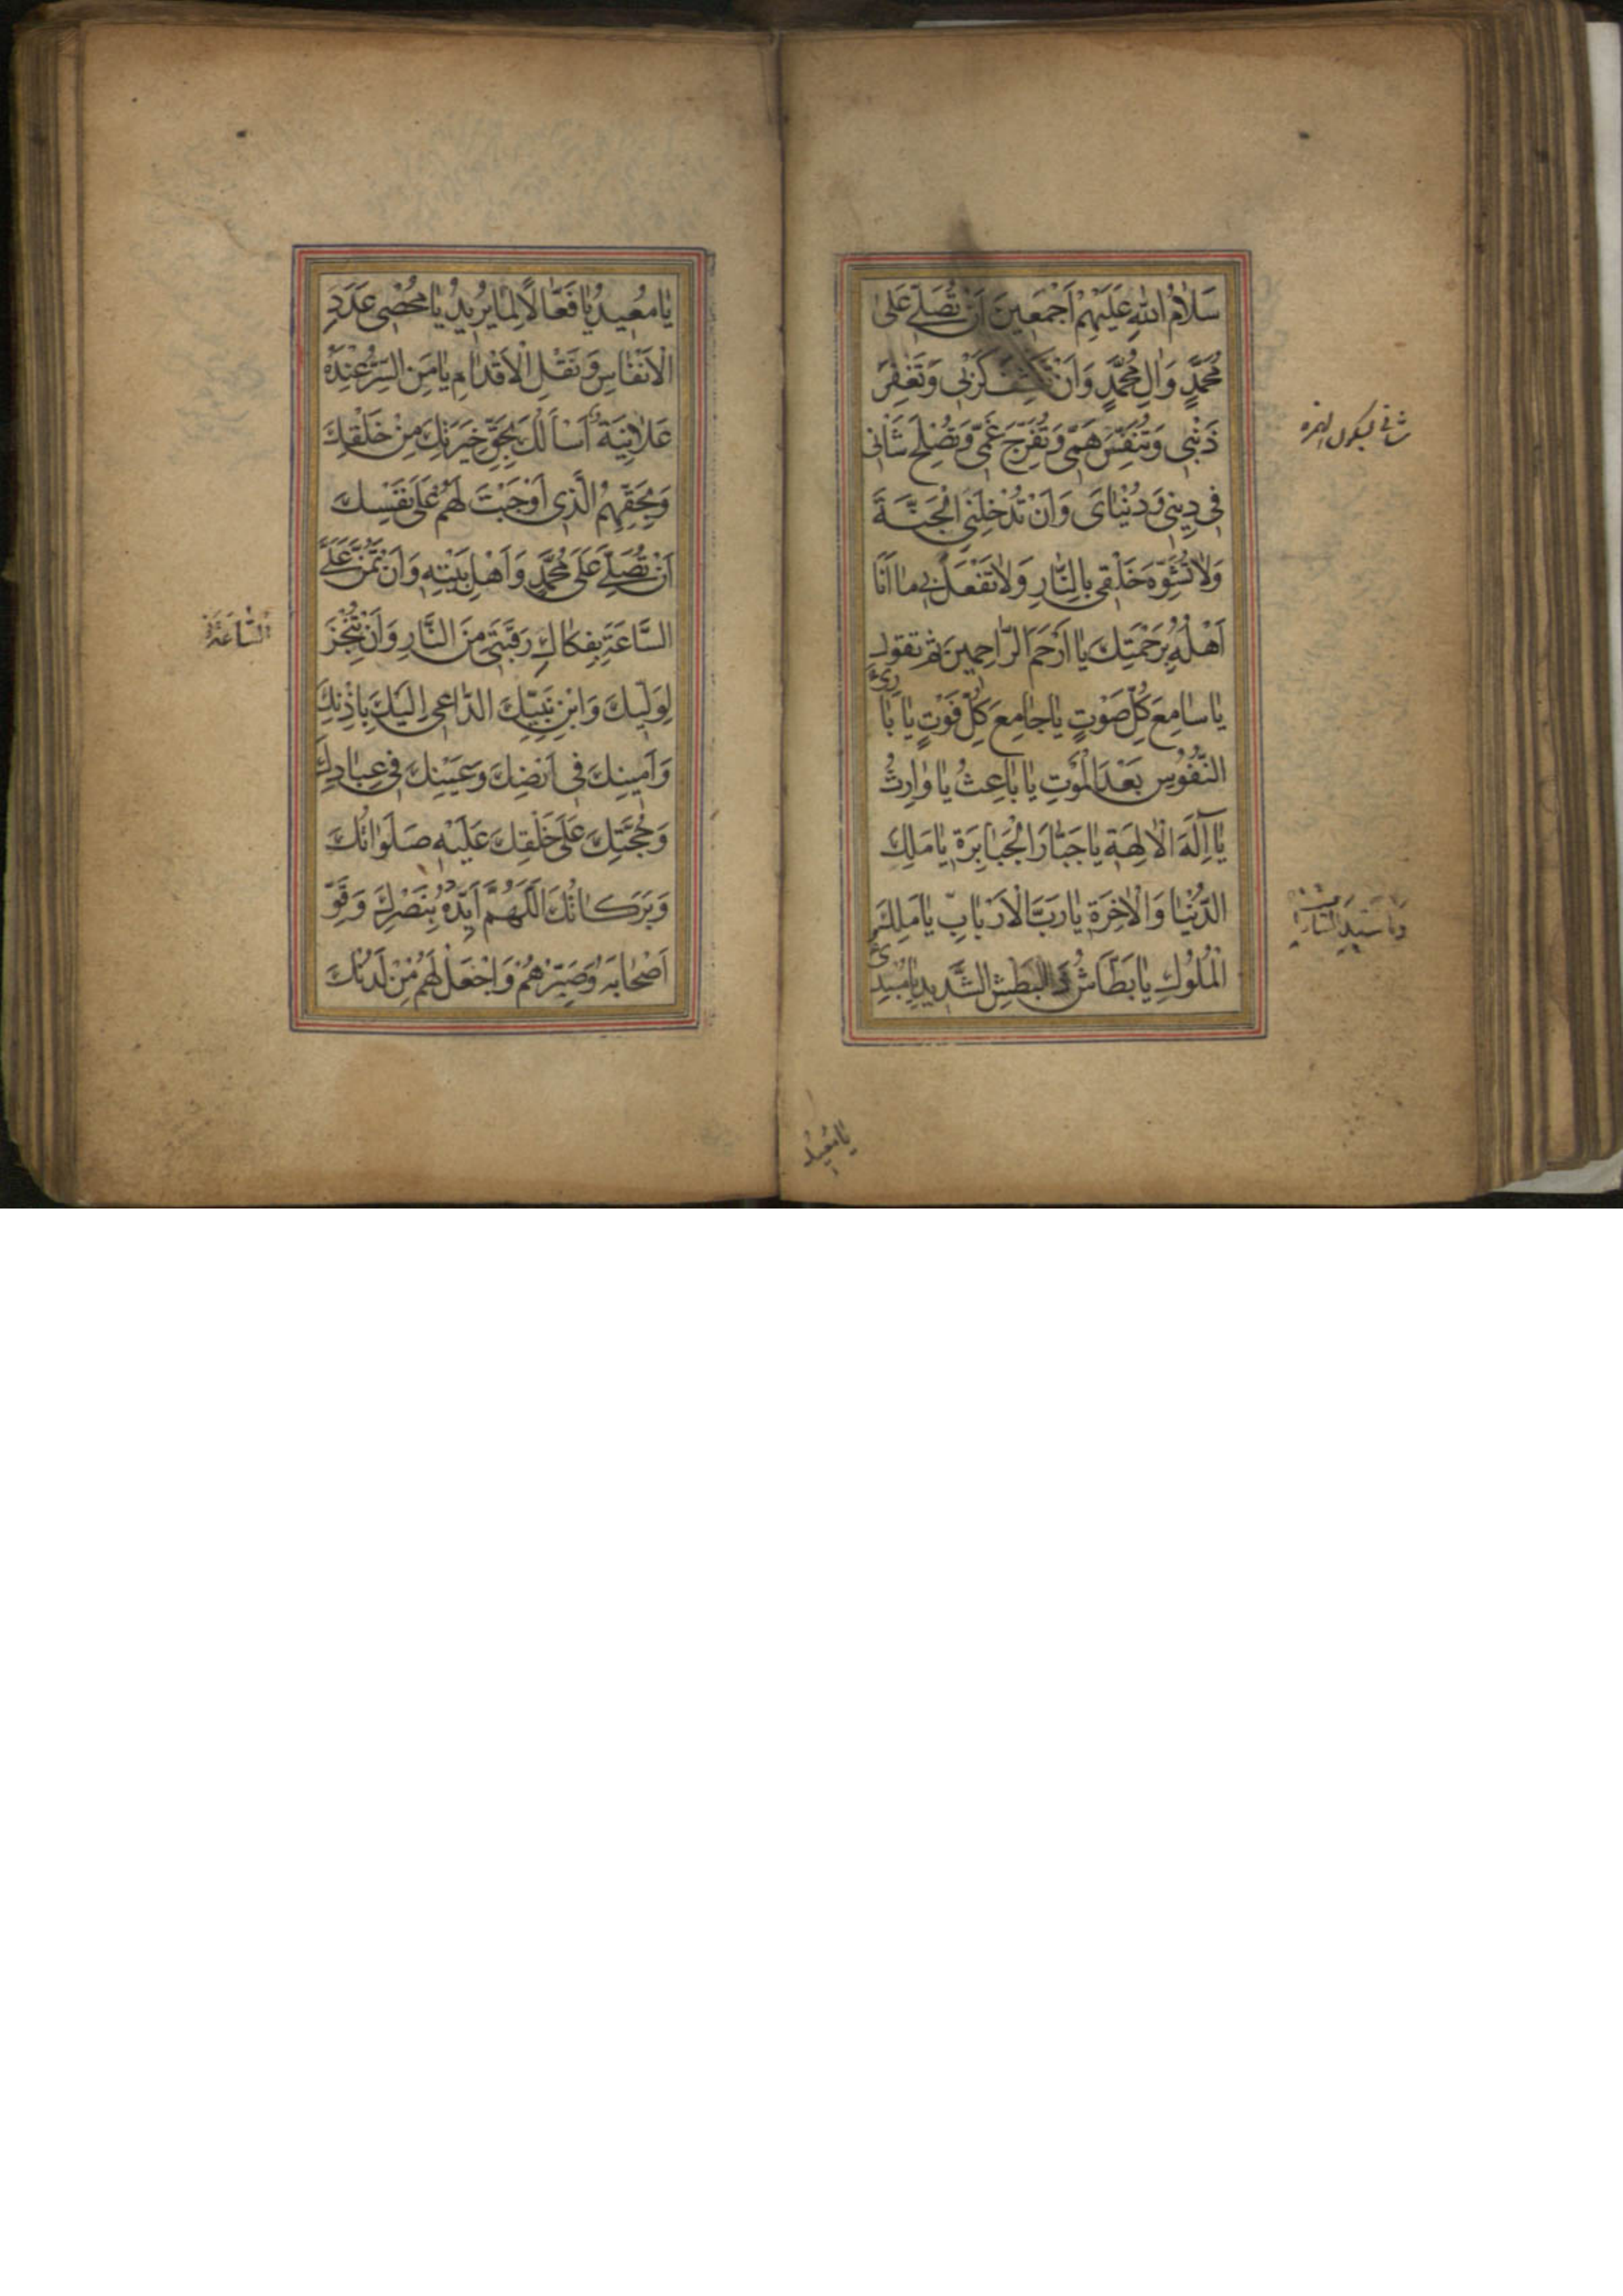 سَلامُ اللهِ عَلَيْهِمْ اَجْمَعينَ اَنْ تُصَلِّيَ عَلىٰ
مُحَمَّدٍ وَالِ مُحَمَّدٍ وَاَنْ تَكْشِفَ كَرْبي وَتَغْفِرَ
ذَنْبي وَتُنَفِّسَ هَمّي وَتُفَرِّجَ غَمّي وَتُصْلِحَ شَأني
في ديني وَدُنْيٰايَ وَاَنْ تُدْخِلَنِي الْجَنَّةَ
وَلاٰتُشَوِّهَ خَلْقي بِالنّارِ وَلاٰتَفْعَلْ بي مٰا اَنَا
اَهْلُهُ بِرَحْمَتِكَ يٰا اَرْحَمَ الرّٰاحِمينَ ثم تقول
يٰا سٰامِعَ كُلِّ صَوْتٍ يٰا جٰامِعَ كُلِّ فَوْتٍ يٰا بٰارِئَ
النُّفُوسِ بَعْدَ الْمَوْتِ يٰا بٰاعِثُ يٰا وٰارِثُ
يٰا اِلٰهَ الْاٰلِهَةِ يٰا جَبّٰارَ الْجَبٰابِرَةِ يٰا مَلِكَ
الدُّنْيٰا وَالْاٰخِرَةِ يٰا رَبَّ الْاَرْبٰابِ يٰا مَلِكَ
الْمُلُوكِ يٰا بَطّٰاشُ ذَا الْبَطْشِ الشَّديدِ يٰا مُبْدِئُ
يٰا مُعيدُ
يٰا مُعيدُ يٰا فَعّٰالاً لِمٰا يُريدُ يٰا مُحْصِيَ عَدَدِ
الْاَنْفٰاسِ وَنَقْلِ الْاَقْدٰامِ يٰا مَنِ السِّرُّ عِنْدَهُ
عَلاٰنِيَةٌ اَسْاَلُكَ بِحَقِّ خِيَرَتِكَ مِنْ خَلْقِكَ
وَبِحَقِّهِمُ الَّذي اَوْجَبْتَ لَهُمْ عَلىٰ نَفْسِكَ
اَنْ تُصَلِّيَ عَلىٰ مُحَمَّدٍ وَاَهْلِ بَيْتِهِ وَاَنْ تَمُنَّ عَلَيَّ
السَّاعَةَ بِفِكٰاكِ رَقَبَتي مِنَ النَّارِ وَاَنْ تُنْجِزَ
السَّاعَةَ
لِوَلِيِّكَ وَابْنِ نَبِيِّكَ الدّٰاعي اِلَيْكَ بِاِذْنِكَ
وَاَمينِكَ في اَرْضِكَ وَعَيْنِكَ في عِبٰادِكَ
وَحُجَّتِكَ عَلىٰ خَلْقِكَ عَلَيْهِ صَلَوٰاتُكَ
وَبَرَكٰاتُكَ اَللّٰهُمَّ اَيِّدْهُ بِنَصْرِكَ وَقَوِّ
اَصْحٰابَهُ وَصَبِّرْهُمْ وَاجْعَلْ لَهُمْ مِنْ لَدُنْكَ